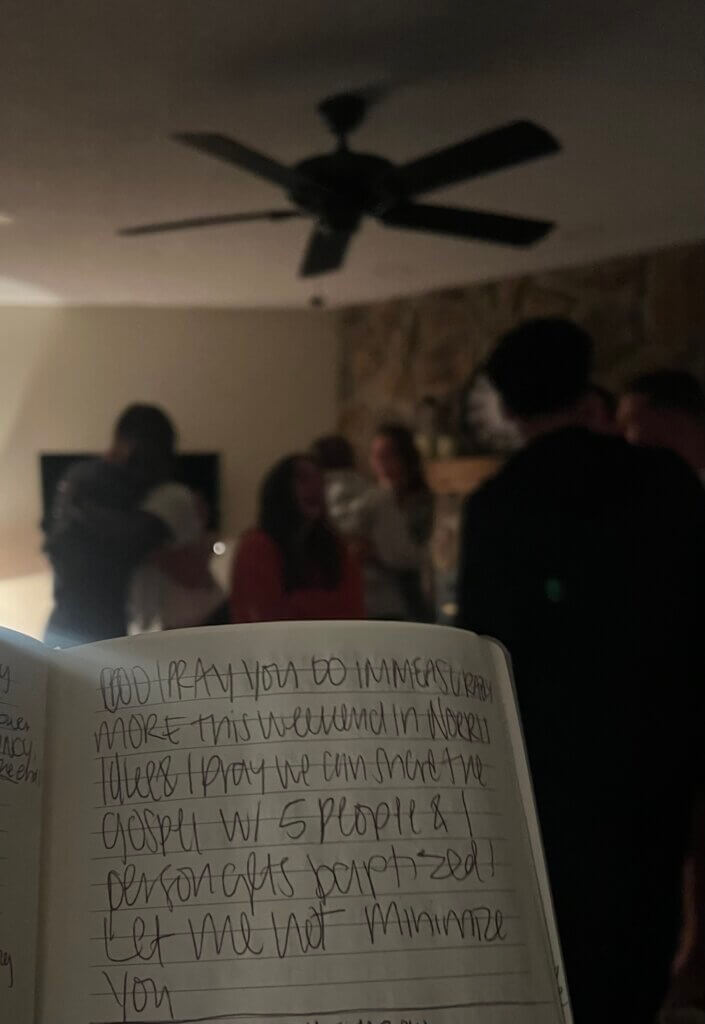 y
GOD I PRAY YOU DO IMMEASURABLY
MORE this weekend in
I pray we can share the
gospel w/ 5 people & 1
person gets baptized!
Let me not minimize
You